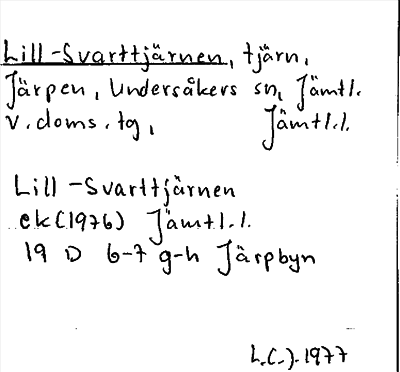 Lill-Svarttjärnen, tjärn,
Järpen, Undersåkers sn, Jämtl.
v. doms. tg, Jämtl.l.
Lill-Svarttjärnen
ek(1976) Jämtl.l.
19 D 6-7 g-h Järpbyn
L.C.J. 1977